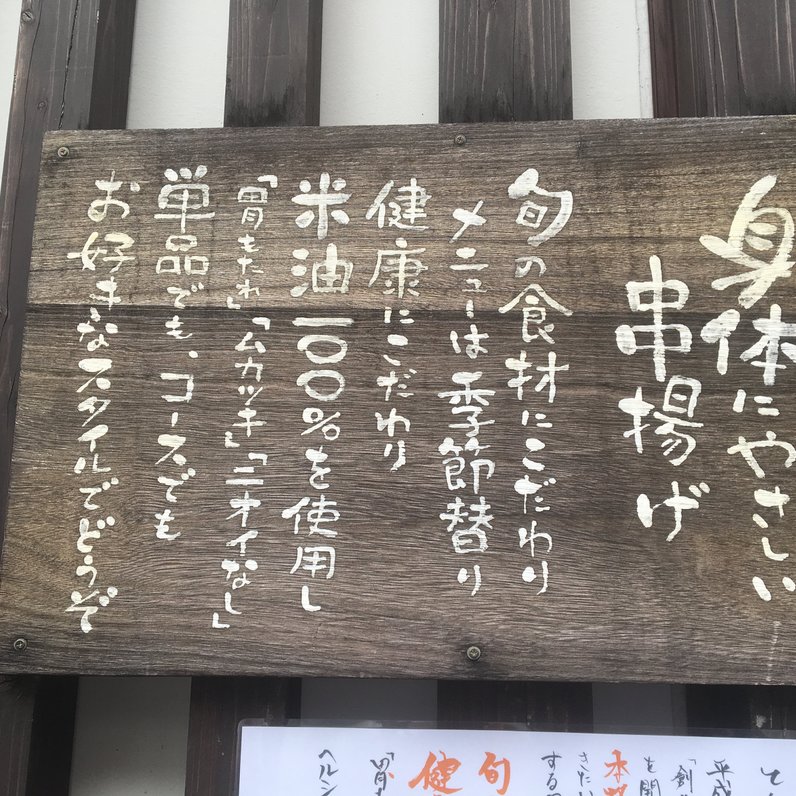 身体にやさしい
串揚げ
旬の食材にこだわり
メニューは季節替り
健康にこだわり
米油一〇〇%を使用し
「胃もたれ」「ムカツキ」「ニオイなし」
単品でも、コースでも
お好きなスタイルでどうぞ
平成
「創
を開
本
きたい
する
旬
健
「胃も
ヘルシ